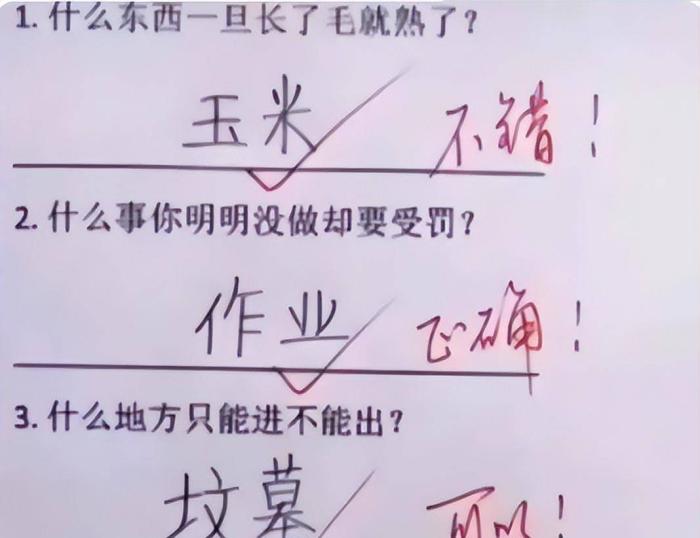 1. 什么东西一旦长了毛就熟了？
玉米 不错！
2. 什么事你明明没做却要受罚？
作业 正确！
3. 什么地方只能进不能出？
坟墓 可以！